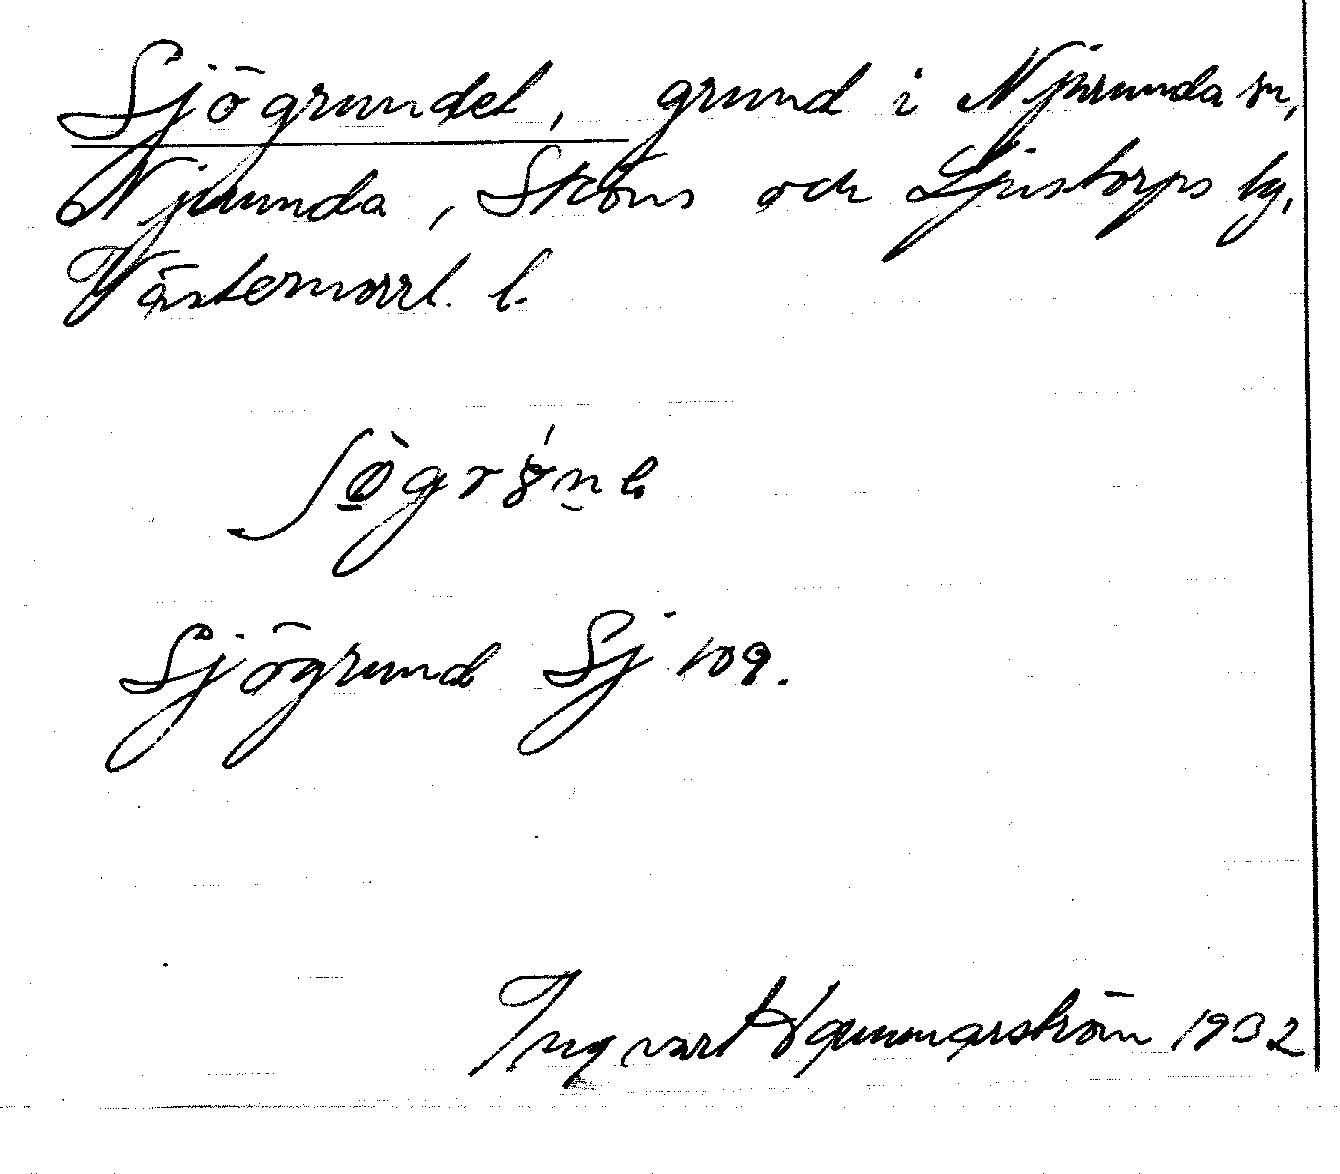 Sjögrundet, grund i Njurunda sn,
Njurunda, Sköns och Ljustorps tg,
Västernorrl. l.
Sjögrund Sj 109.
Ingvart Hammarström 1932